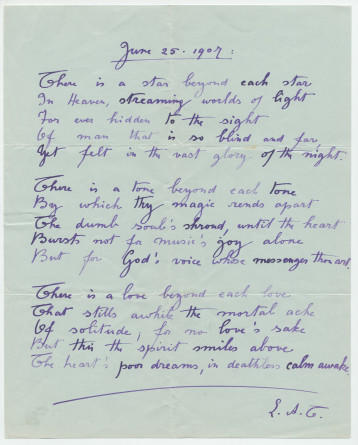 June 25. 1907:
There is a star beyond each star
In Heaven, streaming worlds of light
For ever hidden to the sight
Of man that is so blind and far
Yet felt in the vast glory of the night.
There is a tone beyond each tone
By which thy magic rends apart
The dumb soul's shroud, until the heart
Bursts not for music's joy alone
But for God's voice whose messenger thou art.
There is a love beyond each love
That stills awhile the mortal ache
Of solitude, for no love's sake
But this the spirit smiles above
The heart's poor dreams, in deathless calm awake.